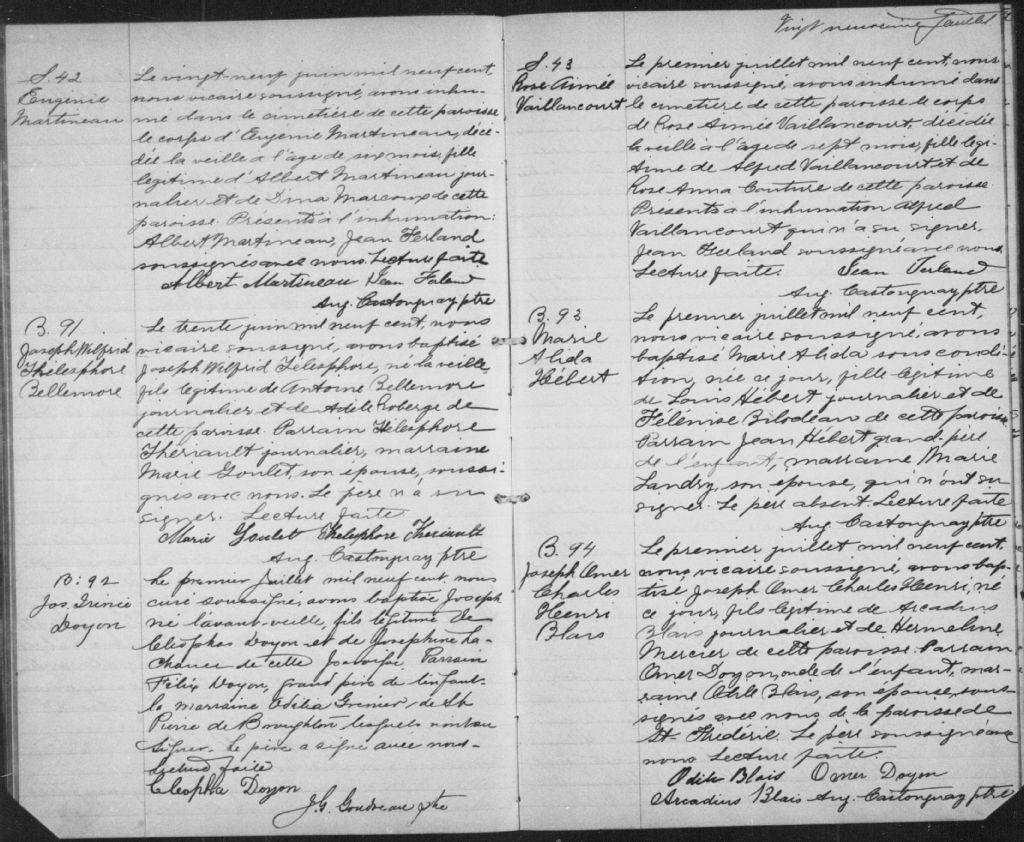 S. 42
Eugenie
Martineau
Le vingt-neuf juin mil neuf cent,
nous vicaire soussigné, avons inhu-
mé dans le cimetière de cette paroisse
le corps d'Eugenie Martineau, décé-
dée la veille à l'âge de six mois, fille
legitime d'Albert Martineau jour-
nalier et de Dina Marcoux de cette
paroisse. Présents à l'inhumation:
Albert Martineau, Jean Ferland
soussignés avec nous. Lecture faite
Albert Martineau Jean Ferland
Aug. Castonguay ptre
B. 91
Joseph Wilfrid
Thélesphore
Bellemore
Le trente juin mil neuf cent, nous
vicaire soussigné, avons baptisé
Joseph Wilfrid Télesphore, né la veille
fils legitime de Antoine Bellemore
journalier et de Adèle Roberge de
cette paroisse. Parrain Thélesphore
Thérrault journalier, marraine
Marie Goulet, son épouse, soussi-
gnés avec nous. Le père n'a su
signer. Lecture faite
Marie Goulet Thélesphore Theriault
Aug. Castonguay ptre
B: 92
Jos.
Doyon
Le premier juillet mil neuf cent, nous
curé soussigné, avons baptisé Joseph
né l'avant-veille, fils légitime de
Cléophas Doyon et de Josephine La-
chance de cette paroisse. Parrain
Félix Doyon, grand père de l'enfant
la marraine Odélia Grenier, de St
Pierre de Broughton lesquels n'ont su
signer. Le père a signé avec nous.
Lecture faite
Cleopha Doyon
J.G. Goudreau ptre
Vingt neuvième feuillet
S. 43
Rose Aimée
Vaillancourt
Le premier juillet mil neuf cent, nous
vicaire soussigné, avons inhumé dans
le cimetière de cette paroisse le corps
de Rose Aimée Vaillancourt, décédée
la veille à l'âge de sept mois, fille legi-
time de Alfred Vaillancourt et de
Rose Anna Couture de cette paroisse.
Présents à l'inhumation Alfred
Vaillancourt qui n'a su signer,
Jean Ferland soussigné avec nous
Lecture faite. Jean Ferland
Aug. Castonguay ptre
B. 93
Marie
Alida
Hébert
Le premier juillet mil neuf cent,
nous vicaire soussigné, avons
baptisé Marie Alida sous condi-
tion, née ce jour, fille legitime
de Louis Hébert journalier et de
Félémise Bilodeau de cette paroisse
Parrain Jean Hébert grand-père
de l'enfant, marraine Marie
Landry, son épouse, qui n'ont su
signer. Le père absent. Lecture faite
Aug. Castonguay ptre
B. 94
Joseph Omer
Charles
Henri
Blais
Le premier juillet mil neuf cent,
nous, vicaire soussigné, avons bap-
tisé Joseph Omer Charles Henri, né
ce jour, fils legitime de Arcadius
Blais journalier et de Hermeline
Mercier de cette paroisse. Parrain
Omer Doyon, oncle de l'enfant, mar-
raine Odile Blais, son épouse, sous-
signés avec nous de la paroisse de
St-Frédéric. Le père soussigné avec
nous Lecture faite.
Odile Blais Omer Doyon
Arcadius Blais Aug. Castonguay ptre